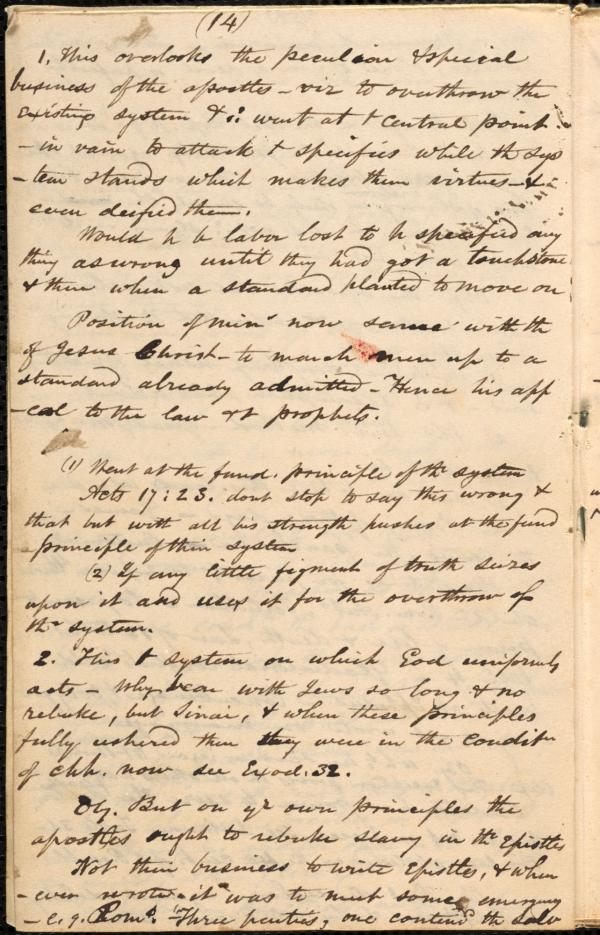 (14)
1. This overlooks the peculiar & special
business of the apostles – viz to overthrow the
existing system & ∴ went at t central point.
– in vain to attack t specifics while th sys
– tem stands which makes them virtues – &
even deified them.
Would h b labor lost to h specified any
thing as wrong until they had got a touchstone
& then when a standard planted to move on
Position of minʳ now same with th
of Jesus Christ – to march men up to a
standard already admitted – Hence his app
– eal to the law & t prophets.
(1) Went at the fund. principle of thʳ system
Acts 17:23. dont stop to say this wrong &
that but with all his strength pushes at the fund
principle of their system
(2) If any little figment of truth seizes
upon it and uses it for the overthrow of
thʳ system.
2. This t system on which God uniformly
acts – Why bear with Jews so long & no
rebuke, but Sinai, & when these principles
fully ushered then they were in the conditⁿ
of chh. now see Exod. 32.
Obj. But on yʳ own principles the
apostles ought to rebuke slavy in thʳ Epistles
Not their business to write Epistles, & when
– ever wrote it was to meet some emergency
– e.g. Romˢ. Three parties, one contendᵍ th